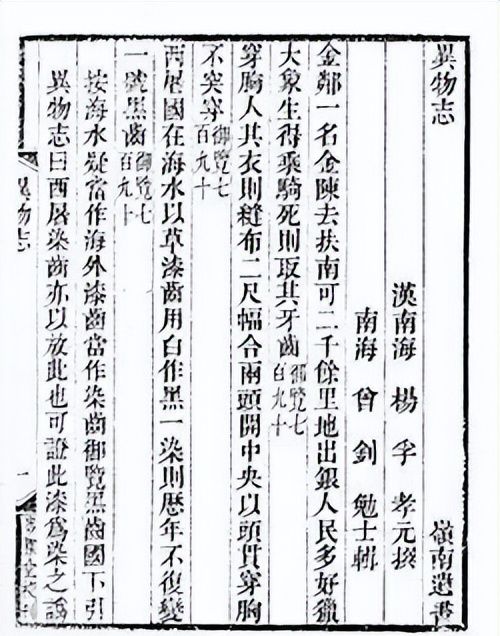 異物志 嶺南遺書
漢南海 楊孚孝元撰
南海 曾釗勉士輯
金鄰一名金陳去扶南可二千餘里地出銀人民多好獵
大象生得乘騎死則取其牙齒御覽七百九十
穿胸人其衣則縫布二尺幅合兩頭開中央以頭貫穿胸
不突穿御覽七百九十
西屠國在海水以草漆齒用白作黑一染則歴年不復變
一號黑齒御覽七百九十
按海水疑當作海外漆齒當作染齒御覽黑齒國下引
異物志曰西屠染齒亦以放此也可證此漆爲染之誤
異物志
一